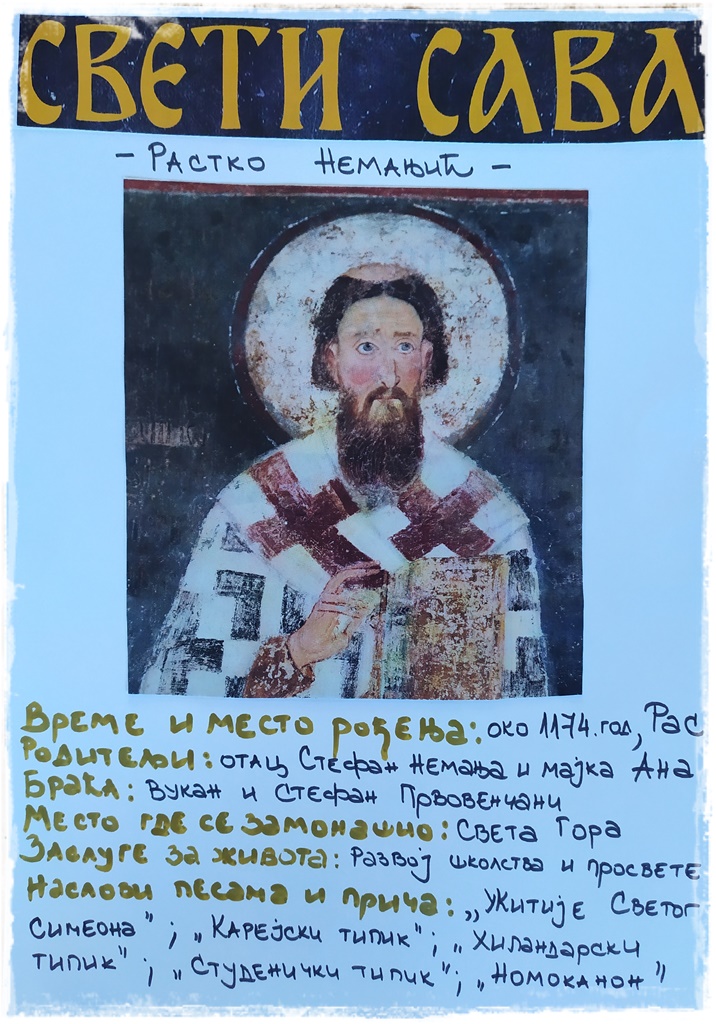 СВЕТИ САВА
- РАСТКО НЕМАЊИЋ -
ВРЕМЕ И МЕСТО РОЂЕЊА: ОКО 1174. ГОД, РАС
РОДИТЕЉИ: ОТАЦ СТЕФАН НЕМАЊА И МАЈКА АНА
БРАЋА: ВУКАН И СТЕФАН ПРВОВЕНЧАНИ
МЕСТО ГДЕ СЕ ЗАМОНАШИО: СВЕТА ГОРА
ЗАСЛУГЕ ЗА ЖИВОТА: РАЗВОЈ ШКОЛСТВА И ПРОСВЕТЕ
НАСЛОВИ ПЕСАМА И ПРИЧА: „ЖИТИЈЕ СВЕТОГ
СИМЕОНА"; „КАРЕЈСКИ ТИПИК"; „ХИЛАНДАРСКИ
ТИПИК"; „СТУДЕНИЧКИ ТИПИК"; „НОМОКАНОН"